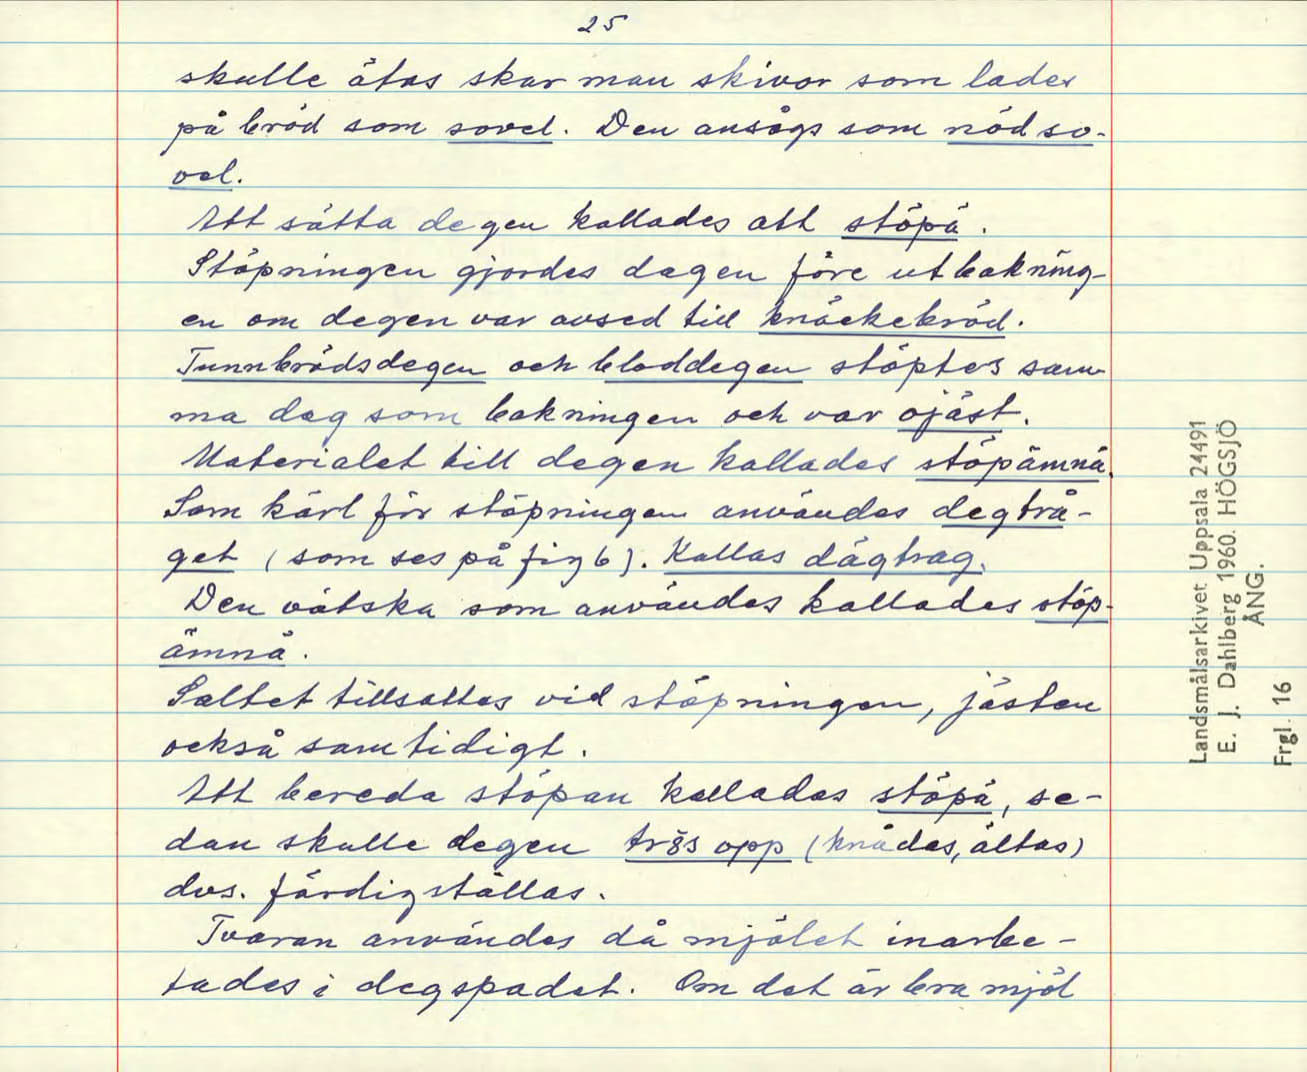 25
skulle ätas skar man skivor som lades
på bröd som sovel. Den ansågs som nödso-
vel.
Att sätta degen kallades att stöpä.
Stöpningen gjordes dagen före utbakning-
en om degen var avsed till knäckebröd.
Tunnbrödsdegen och bloddegen stöptes sam-
ma dag som bakningen och var ojäst.
Materialet till degen kallades stöpämnä.
Som kärl för stöpningen användes degtrå-
get (som ses på fig 6). Kallas dägtrag.
Den vätska som användes kallades stöp-
ämnä.
Saltet tillsattes vid stöpningen, jästen
också samtidigt.
Att bereda stöpan kallades stöpä, se-
dan skulle degen opp (knådas, ältas)
dvs. färdigställas.
Tvaran användes då mjölet inarbe-
tades i degspadet. Om det är bra mjöl
Landsmålsarkivet Uppsala 24491
E. J. Dahlberg 1960. HÖGSJÖ
ÅNG.
Frgl. 16